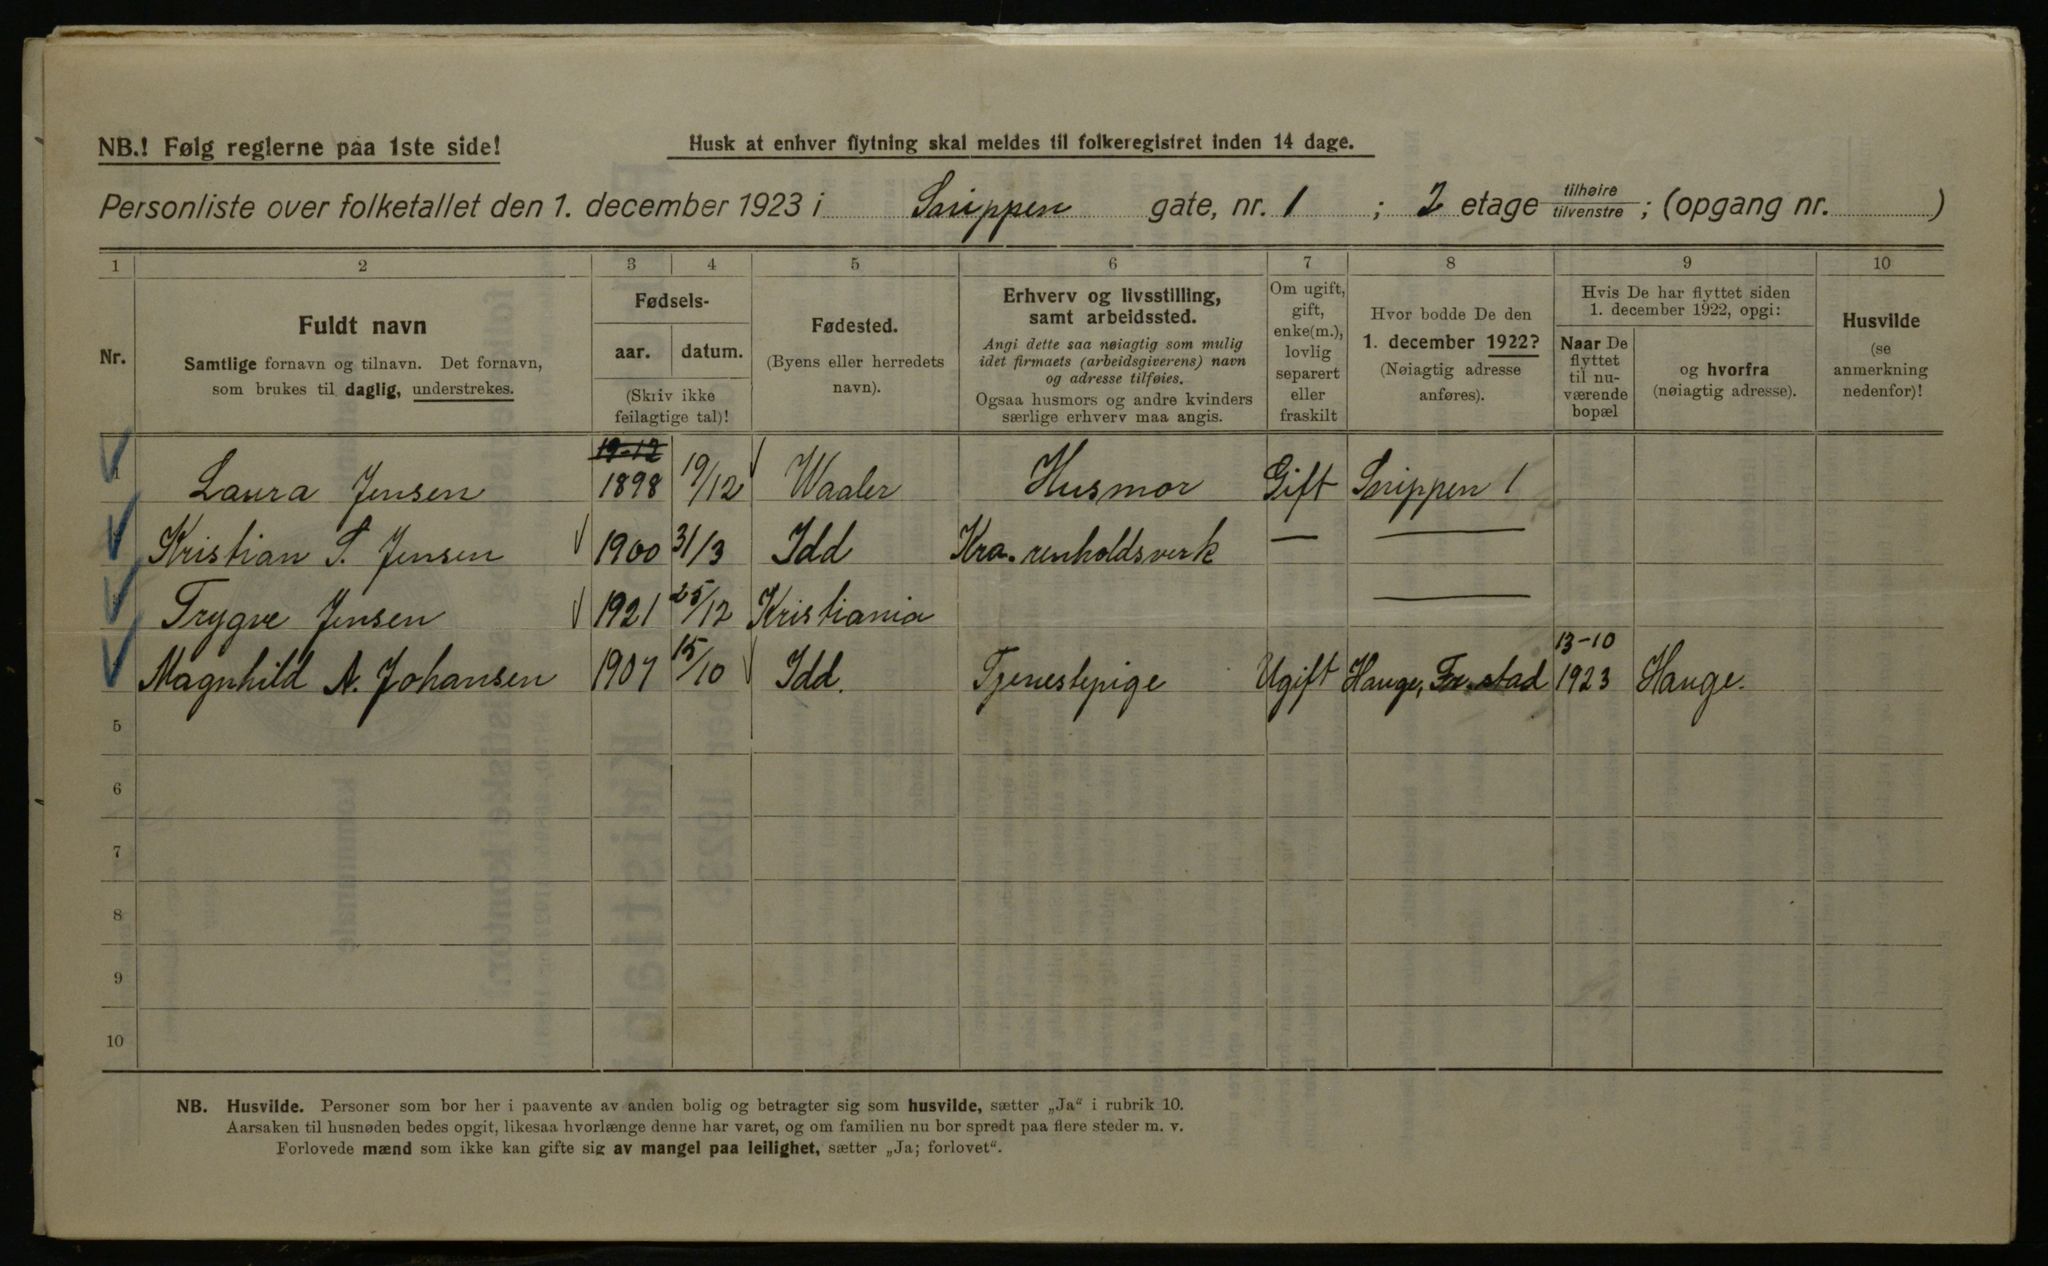 NB.! Følg reglerne paa 1ste side!
Husk at enhver flytning skal meldes til folkeregistret inden 14 dage.
Personliste over folketallet den 1. december 1923 i Snippen gate, nr. 1 ; 2 etage tilhøire tilvenstre ; (opgang nr. )
1 2 3 4 5 6 7 8 9 10
Nr.
Fuldt navn
Samtlige fornavn og tilnavn. Det fornavn,
som brukes til daglig, understrekes.
Fødsels-
aar. datum.
(Skriv ikke
feilagtige tal)!
Fødested.
(Byens eller herredets
navn).
Erhverv og livsstilling,
samt arbeidssted.
Angi dette saa nøiagtig som mulig
idet firmaets (arbeidsgiverens) navn
og adresse tilføies.
Ogsaa husmors og andre kvinders
særlige erhverv maa angis.
Om ugift,
gift,
enke(m.),
lovlig
separert
eller
fraskilt
Hvor bodde De den
1. december 1922?
(Nøiagtig adresse
anføres).
Hvis De har flyttet siden
1. december 1922, opgi:
Naar De
flyttet
til nu-
værende
bopæl
og hvorfra
(nøiagtig adresse).
Husvilde
(se
anmerkning
nedenfor)!
19-12
1 Laura Jensen 1898 19/12 Waaler Husmor Gift Snippen 1
Kristian S. Jensen 1900 31/3 Idd Kra. renholdsverk — —
Trygve Jensen 1921 25/12 Kristiania —
13-10
Magnhild A. Johansen 1907 15/10 Idd. Tjenestepige Ugift Hauge, Fr.stad 1923 Hauge.
5
6
7
8
9
10
NB. Husvilde. Personer som bor her i paavente av anden bolig og betragter sig som husvilde, sætter „Ja“ i rubrik 10.
Aarsaken til husnøden bedes opgit, likesaa hvorlænge denne har varet, og om familien nu bor spredt paa flere steder m. v.
Forlovede mænd som ikke kan gifte sig av mangel paa leilighet, sætter „Ja; forlovet“.